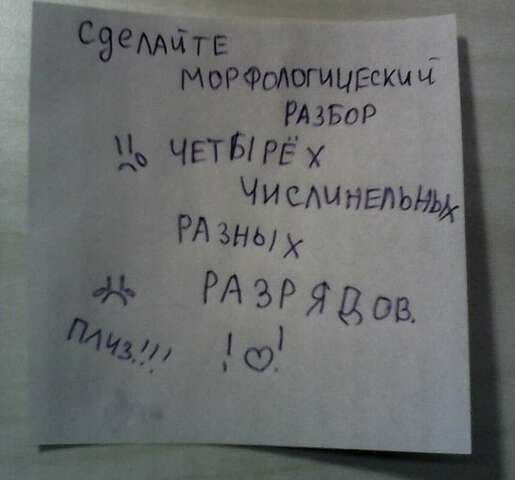 Сделайте
морфологический
разбор
четырёх
числинельных
разных
разрядов.
плиз!!! !♡!